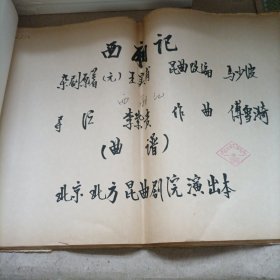 西厢记
杂剧原著（元）王实甫 昆曲改编 马少波
西厢记
导演 李紫贵 作曲 傅雪漪
（曲谱）
北京 北方昆曲剧院 演出本